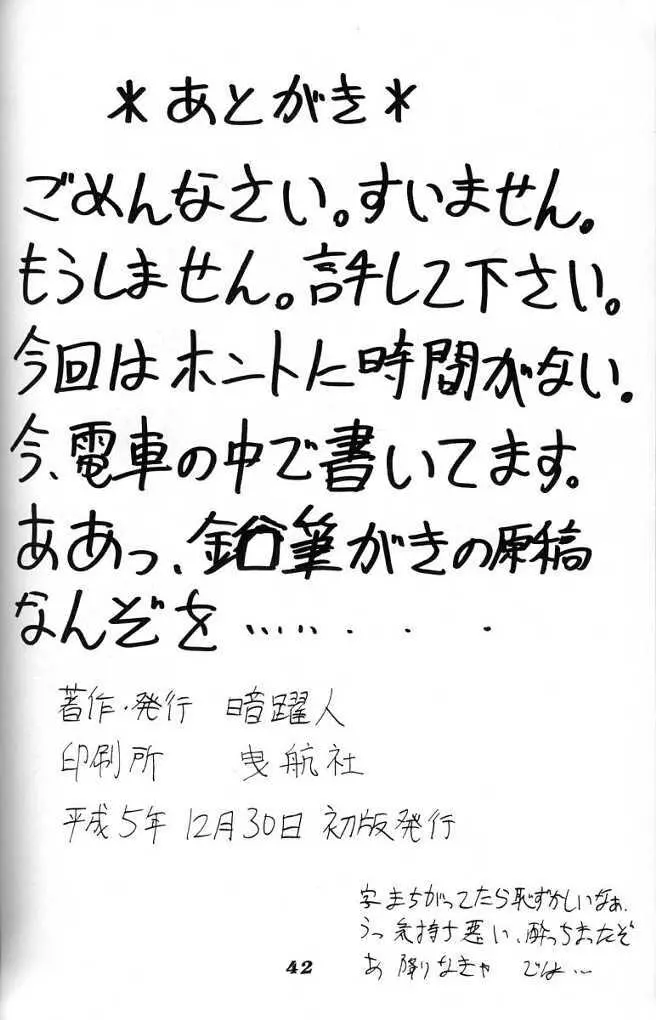 *あとがき*
ごめんなさい。すいません。
もうしません。許して下さい。
今回はホントに時間がない。
今、電車の中で書いてます。
ああっ、鉛筆がきの原稿
なんぞを‥‥‥・・・
著作・発行 暗躍人
印刷所 曳航社
平成5年12月30日 初版発行
字まちがってたら恥ずかしいなぁ、
うっ気持ち悪い、酔っちまったぞ
あ 降りなきゃ では…
42